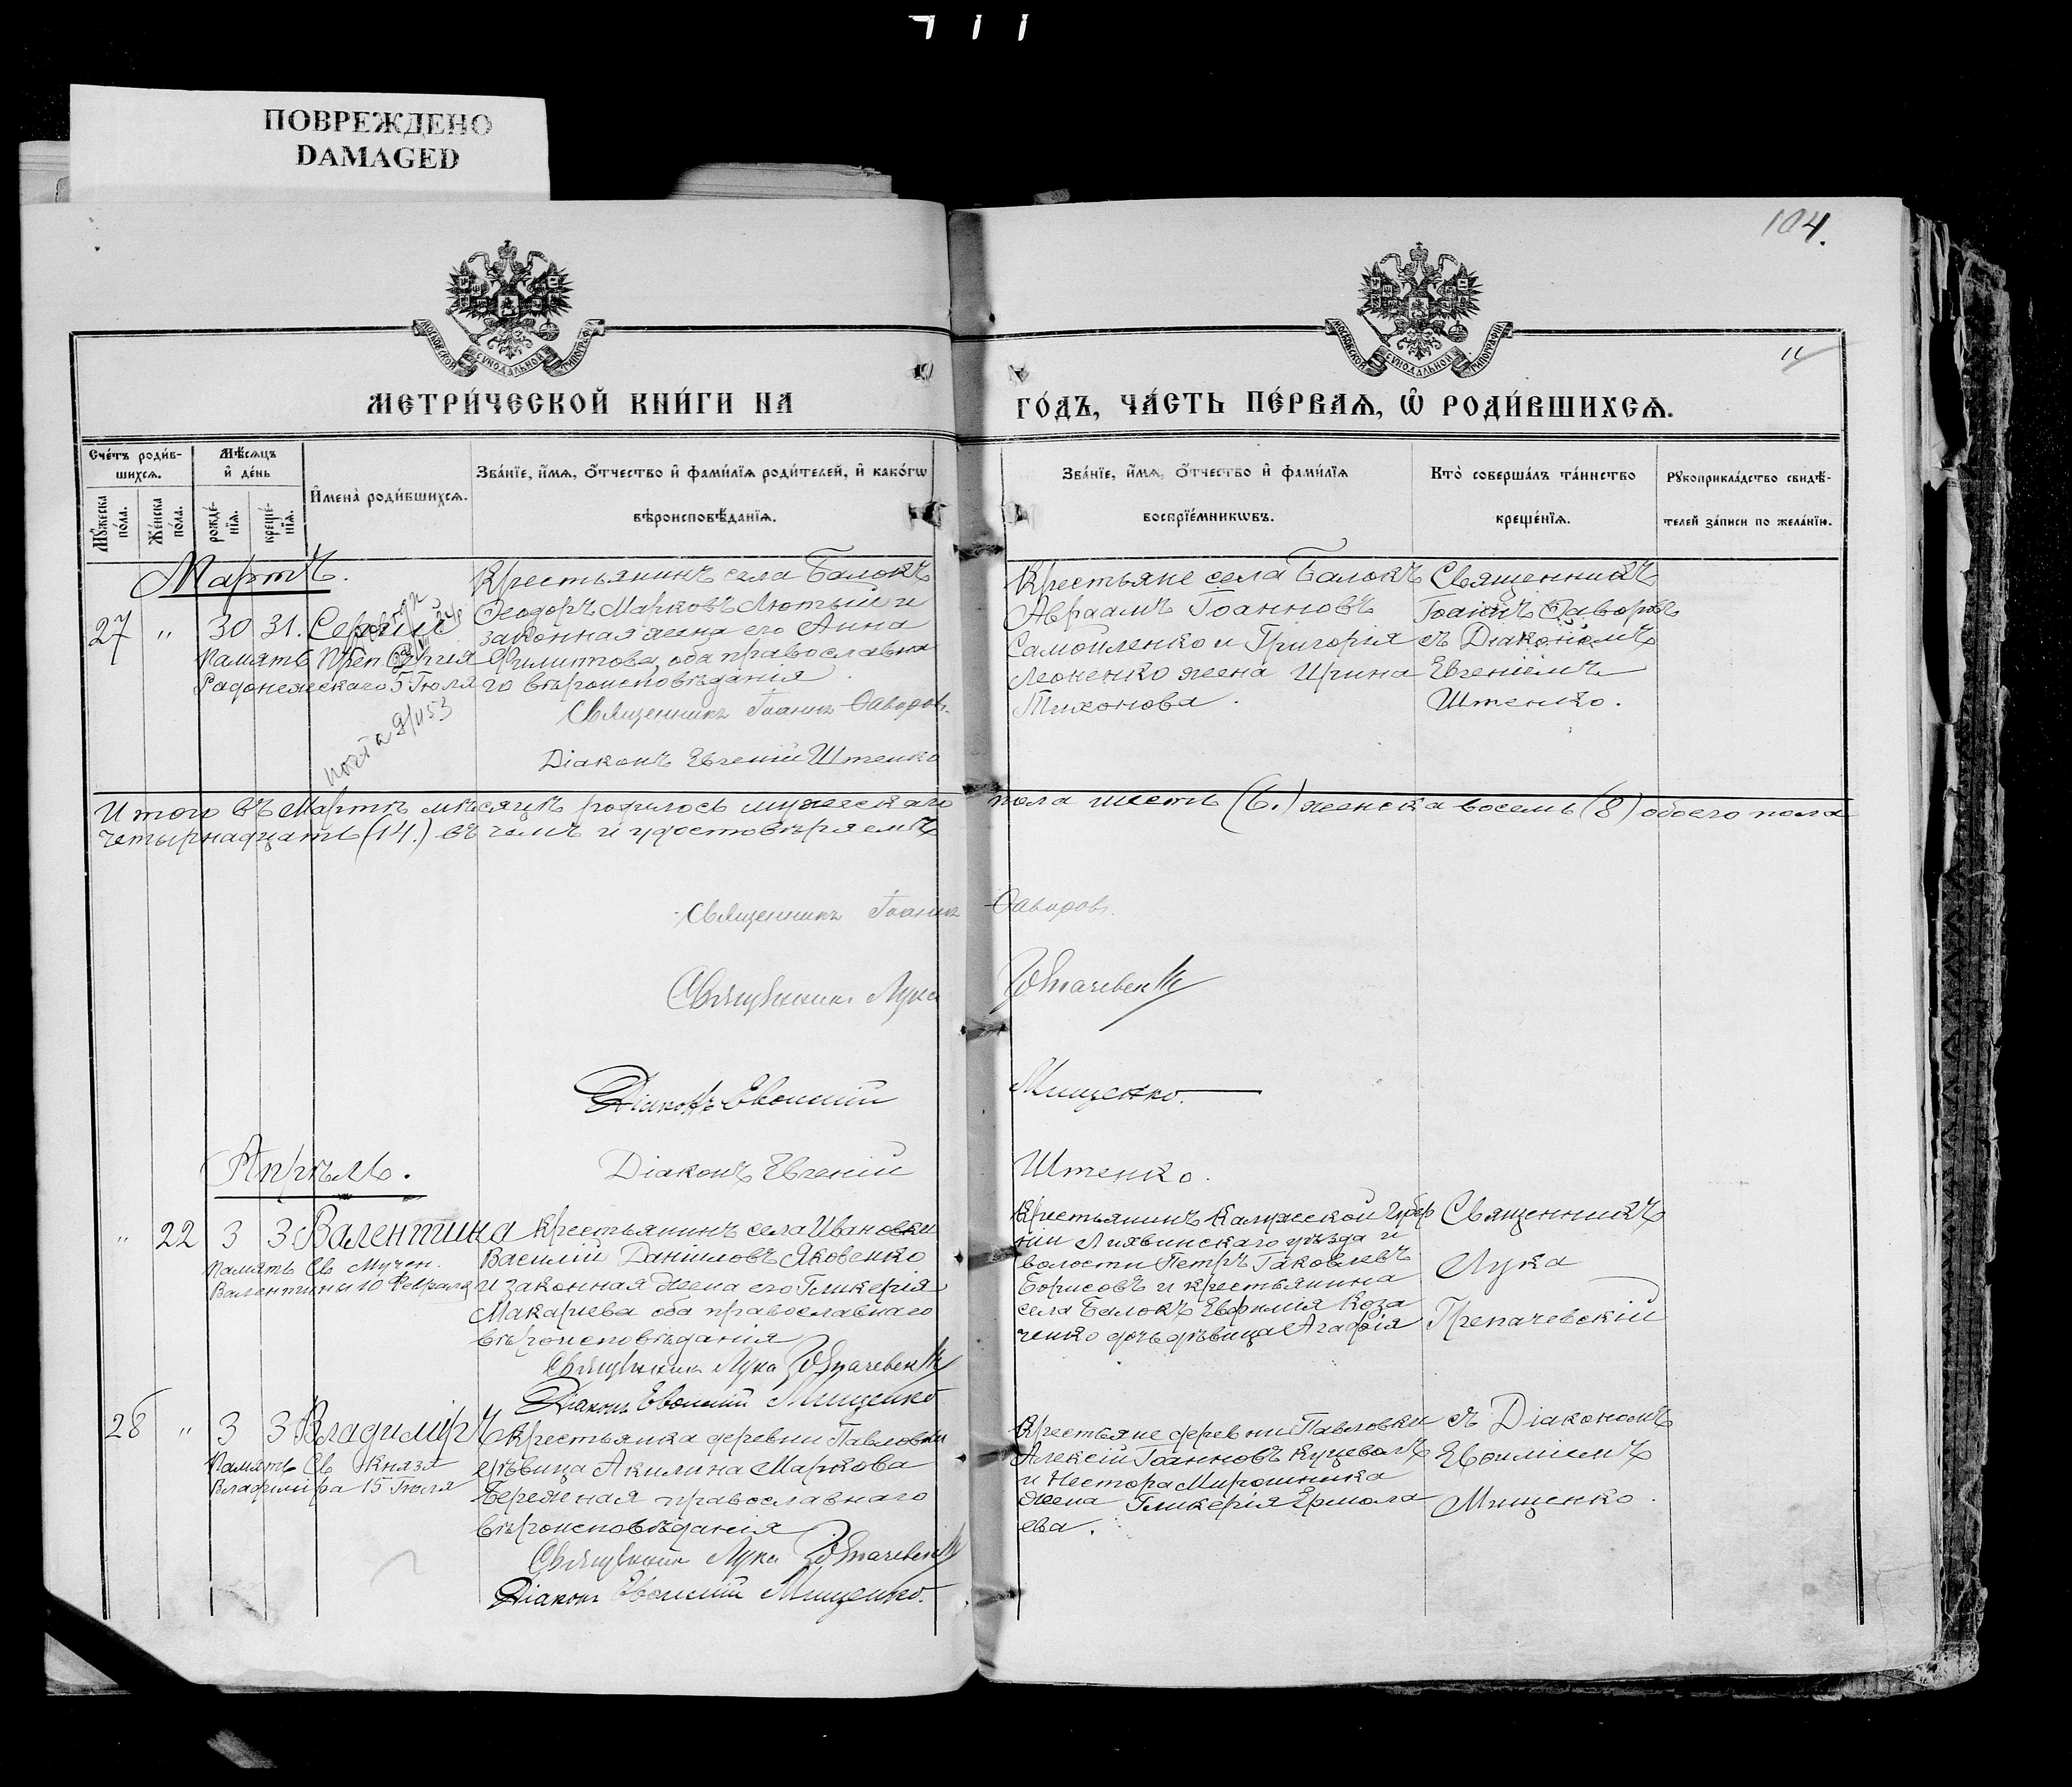 ПОВРЕЖДЕНО
DAMAGED
104.
11
МОСКОВСКОЙ СѴНОДАЛЬНОЙ ТИПОГРАФІИ
МОСКОВСКОЙ СѴНОДАЛЬНОЙ ТИПОГРАФІИ
МЕТРИ́ЧЕСКОЙ КНИ́ГИ НА
ГО́ДЪ, ЧА́СТЬ ПЕ́РВАѦ, Ѡ҆ РОДИ́ВШИХСѦ.
Сче́тъ роди́в-
шихсѧ.
Мꙋ́жеска
по́ла.
Же́нска
по́ла.
Мѣ́сѧцъ
и҆ де́нь
рожде́-
нїѧ.
креще́-
нїѧ.
И҆мена̀ роди́вшихсѧ.
Зва́нїе, и҆́мѧ, ѻ҆́тчество и҆ фами́лїѧ роди́телей, и҆ како́гѡ
вѣроисповѣ́данїѧ.
Зва́нїе, и҆́мѧ, ѻ҆́тчество и҆ фами́лїѧ
воспрїе́мникѡвъ.
Кто̀ соверша́лъ та́инство
креще́нїѧ.
Рꙋкоприкла́дство свидѣ́-
телей за́писи по жела́нїю.
Мартъ.
27 " 30 31. Сергій
Память Преп Сергія
Радонежскаго 5 Іюля
Крестьянинъ села Балокъ
Ѳеодоръ Марковъ Лютый и
законная жена его Анна
Филиппова, оба православна
го вѣроисповѣданія
Священникъ Іоаннъ Ѳаворовъ.
Діаконъ Евгеній Штенко
Крестьяне села Балокъ
Авраамъ Іоанновъ
Самойленко и Григорія
жена Ирина
Тихонова.
Священникъ
Іоаннъ Ѳаворовъ
съ Діакономъ
Евгеніемъ
Штенко.
Итого въ Мартѣ мѣсяцѣ родилось мужескаго пола шесть (6.) женска восемь (8) обоего пола
четырнадцать (14.) въ чемъ и удостовѣряемъ
Священникъ Іоаннъ Ѳаворовъ.
Священникъ Лука
Діаконъ Евѳимій Мищенко.
Діаконъ Евгеній Штенко.
Апрѣль.
" 22 3 3 Валентина
Память Св Мучен.
Валентины 10 Февраля
Крестьянинъ села Ивановки
Василій Даніиловъ Яковенко
и законная жена его Гликерія
Макариева оба православнаго
вѣроисповѣданія
Священникъ Лука
Діаконъ Евѳимій Мищенко
Крестьянинъ Калужской Губер
ніи Лихвинскаго уѣзда и
волости Петръ Іаковлевъ
Борисовъ и крестьянина
села Балокъ Евфимія Коза
ченко дочь дѣвица Агафія
Священникъ
Лука
Грепачевскій
28 " 3 3 Владиміръ
Память Св князя
Владиміра 15 Іюля
Крестьянка деревни Павловки
дѣвица Акилина Маркова
Бережная православнаго
вѣроисповѣданія
Священникъ Лука
Діаконъ Евѳимій Мищенко.
Крестьяне деревни Павловки
Алексій Іоанновъ Куцеволъ
и Нестора Мирошника
жена Гликерія Ермола
ева.
съ Діакономъ
Евѳиміемъ
Мищенко.